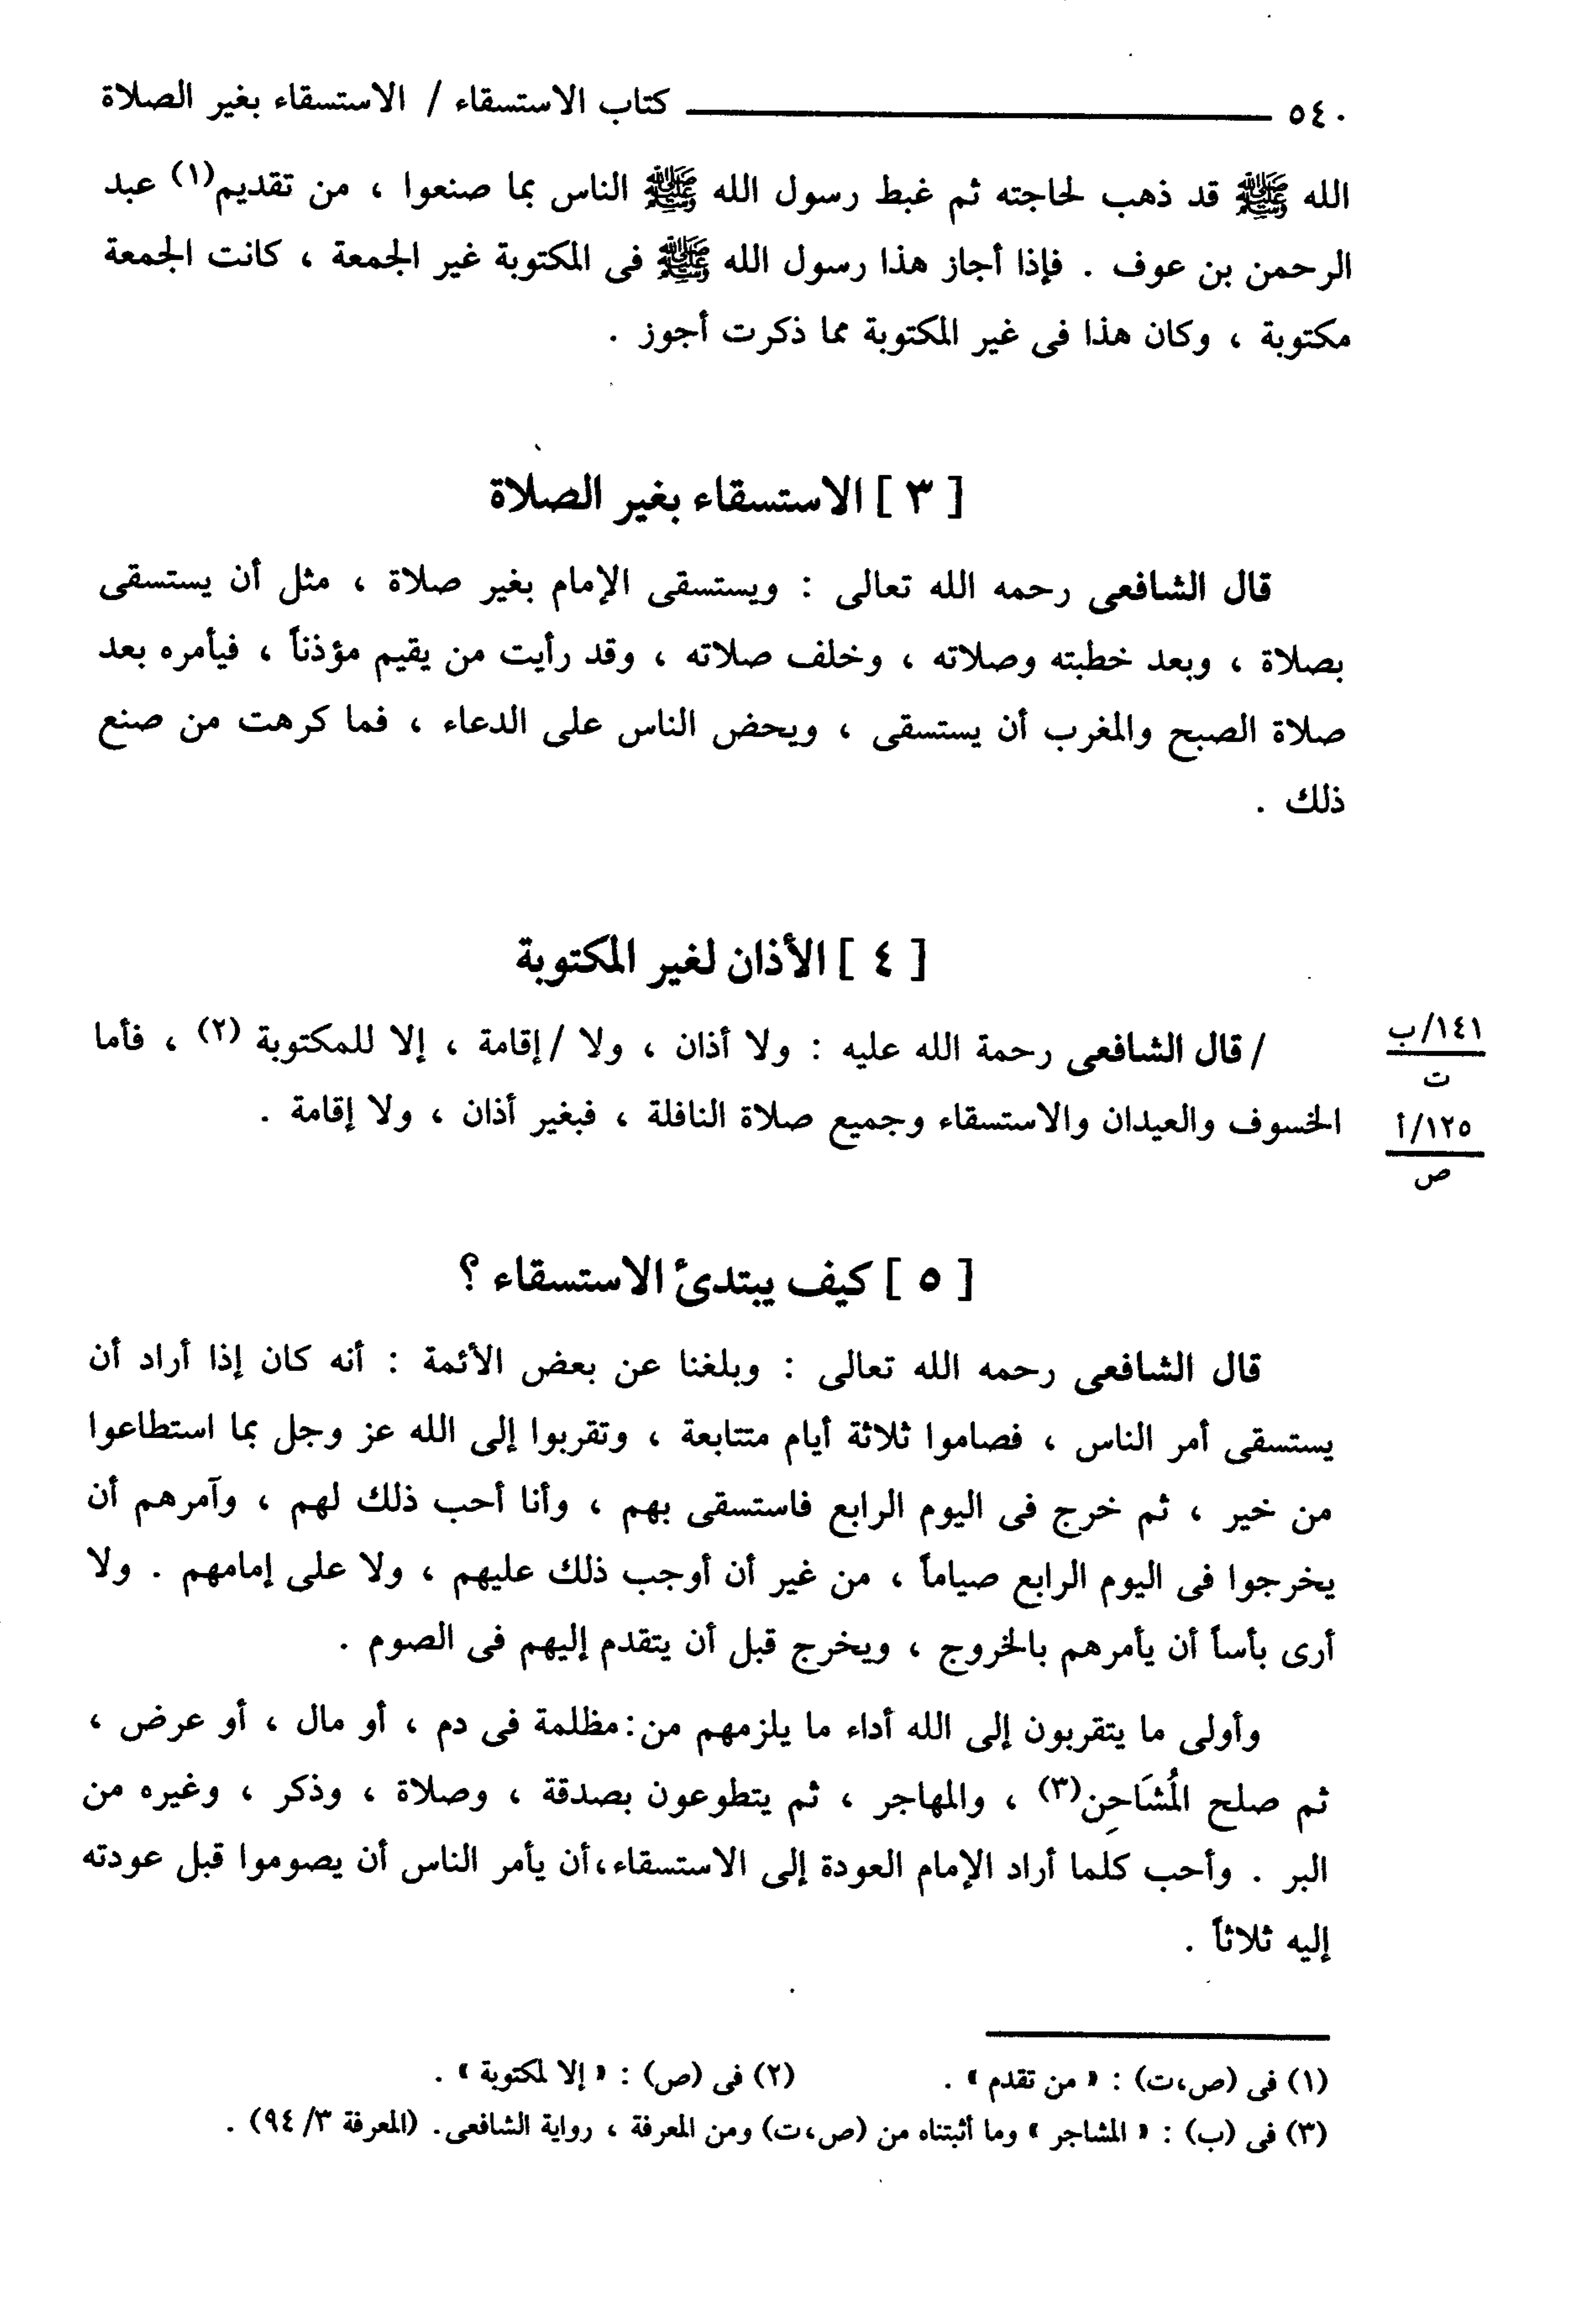 ٥٤٠ كتاب الاستسقاء / الاستسقاء بغير الصلاة
الله ﷺ قد ذهب لحاجته ثم غبط رسول الله ﷺ الناس بما صنعوا ، من تقديم(١) عبد
الرحمن بن عوف . فإذا أجاز هذا رسول الله ﷺ فى المكتوبة غير الجمعة ، كانت الجمعة
مكتوبة ، وكان هذا فى غير المكتوبة مما ذكرت أجوز .
[ ٣ ] الاستسقاء بغير الصلاة
قال الشافعى رحمه الله تعالى : ويستسقى الإمام بغير صلاة ، مثل أن يستسقى
بصلاة ، وبعد خطبته وصلاته ، وخلف صلاته ، وقد رأيت من يقيم مؤذناً ، فيأمره بعد
صلاة الصبح والمغرب أن يستسقى ، ويحض الناس على الدعاء ، فما كرهت من صنع
ذلك .
[ ٤ ] الأذان لغير المكتوبة
/ قال الشافعى رحمة الله عليه : ولا أذان ، ولا / إقامة ، إلا للمكتوبة (٢) ، فأما
الخسوف والعيدان والاستسقاء وجميع صلاة النافلة ، فبغير أذان ، ولا إقامة .
١٤١/ب
ت
١٢٥/أ
ص
[ ٥ ] كيف يبتدئ الاستسقاء ؟
قال الشافعى رحمه الله تعالى : وبلغنا عن بعض الأئمة : أنه كان إذا أراد أن
يستسقى أمر الناس ، فصاموا ثلاثة أيام متتابعة ، وتقربوا إلى الله عز وجل بما استطاعوا
من خير ، ثم خرج فى اليوم الرابع فاستسقى بهم ، وأنا أحب ذلك لهم ، وآمرهم أن
يخرجوا فى اليوم الرابع صياماً ، من غير أن أوجب ذلك عليهم ، ولا على إمامهم . ولا
أرى بأساً أن يأمرهم بالخروج ، ويخرج قبل أن يتقدم إليهم فى الصوم .
وأولى ما يتقربون إلى الله أداء ما يلزمهم من : مظلمة فى دم ، أو مال ، أو عرض ،
ثم صلح المُشَاحِن(٣) ، والمهاجر ، ثم يتطوعون بصدقة ، وصلاة ، وذكر ، وغيره من
البر . وأحب كلما أراد الإمام العودة إلى الاستسقاء، أن يأمر الناس أن يصوموا قبل عودته
إليه ثلاثاً .
(١) فى (ص،ت) : « من تقدم » . (٢) فى (ص) : « إلا لمكتوبة » .
(٣) فى (ب) : « المشاجر » وما أثبتناه من (ص،ت) ومن المعرفة ، رواية الشافعى. (المعرفة ٣/ ٩٤) .